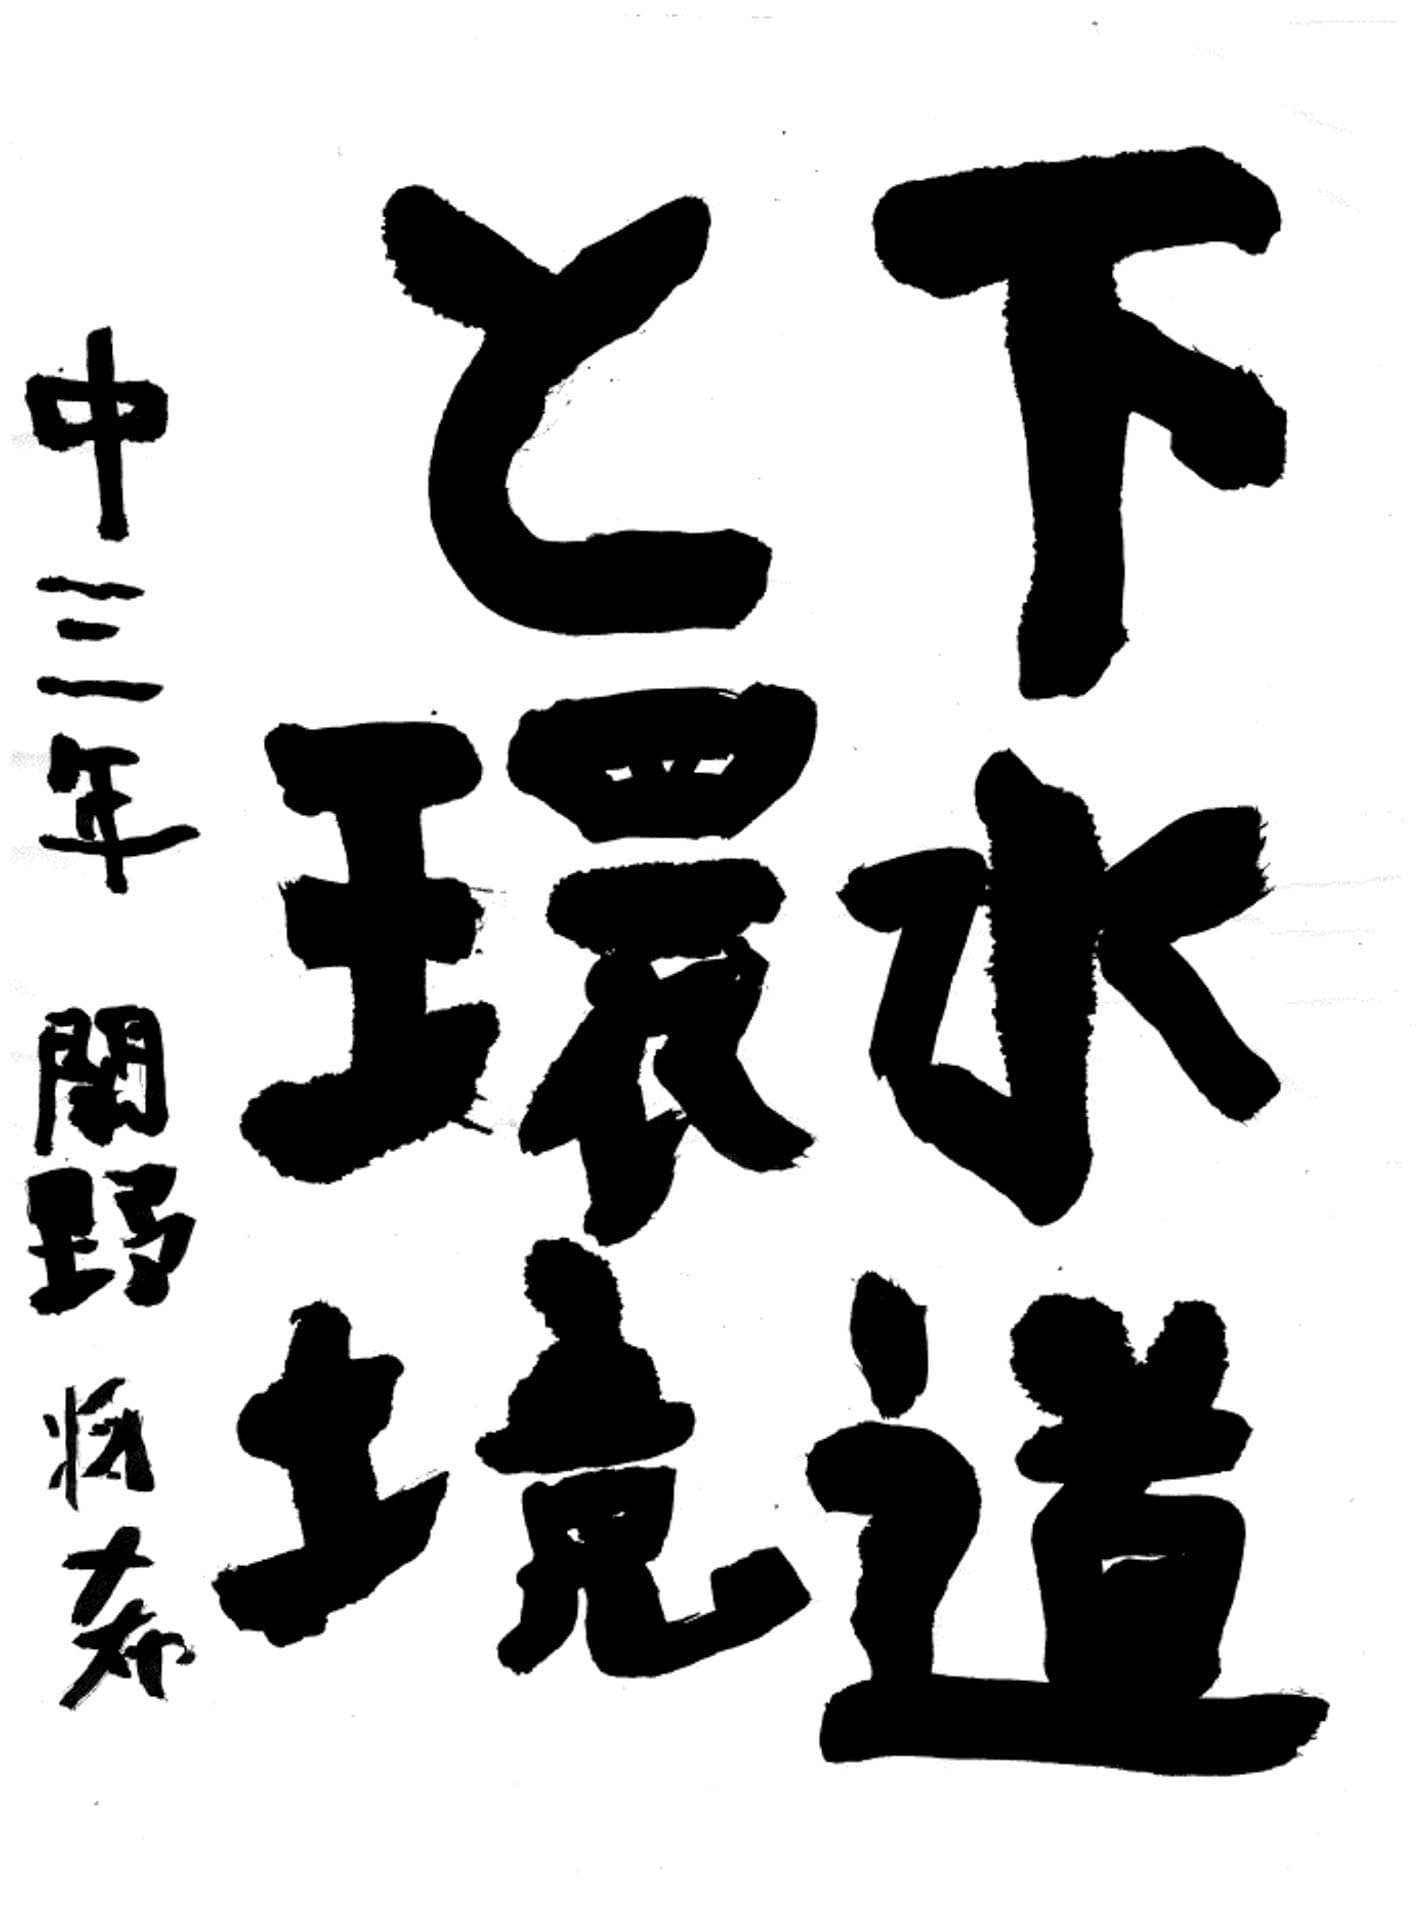 下水道
と環境
中三年 関野 将布